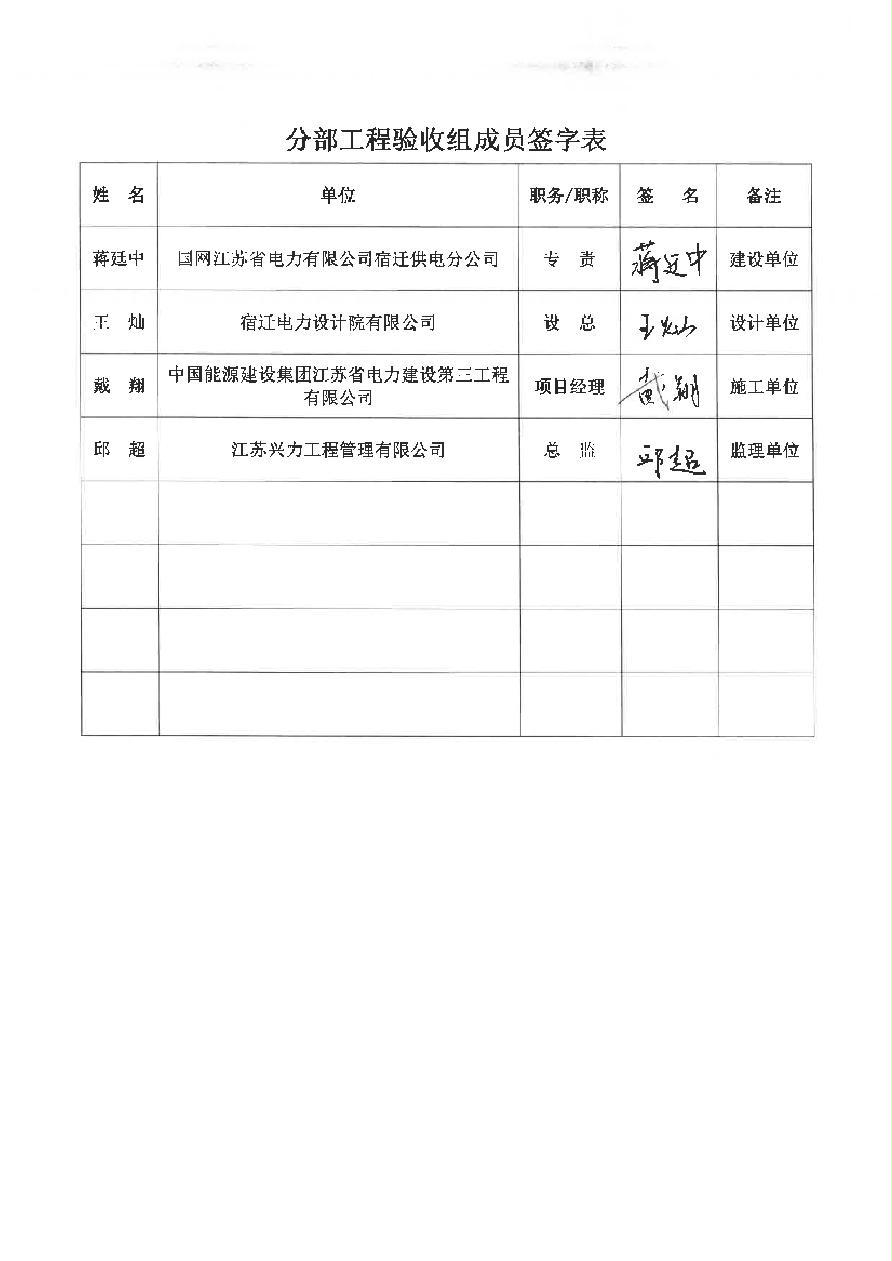 分部工程验收组成员签字表
姓 名 单位 职务/职称 签 名 备注
蒋廷中 国网江苏省电力有限公司宿迁供电分公司 专 责 蒋廷中 建设单位
王 灿 宿迁电力设计院有限公司 设 总 王灿 设计单位
戴 翔 中国能源建设集团江苏省电力建设第三工程 项目经理 戴翔 施工单位
有限公司
邱 超 江苏兴力工程管理有限公司 总 监 邱超 监理单位